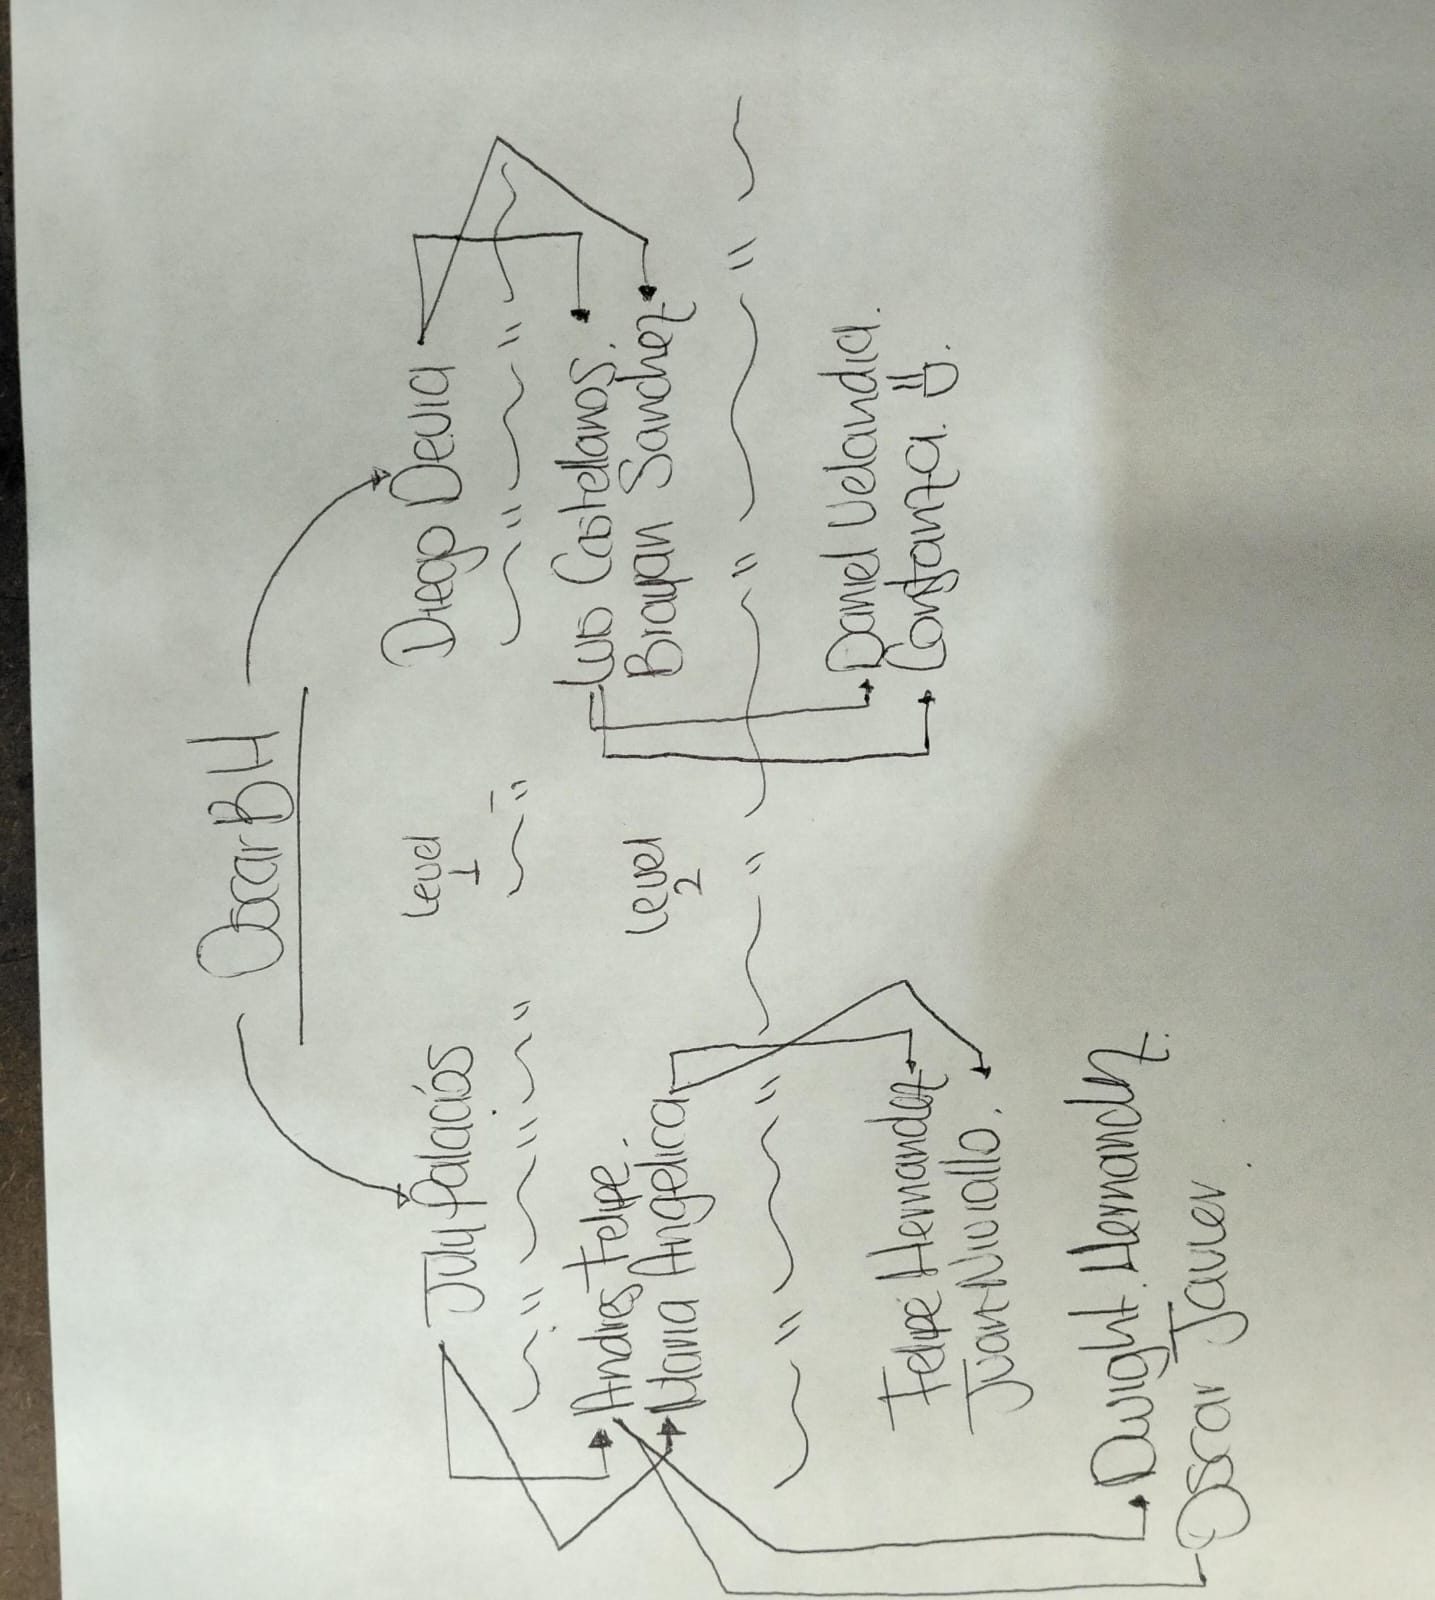 Oscar BH
July Palacios
Level
1
Diego Devia
Andres Felipe.
Maria Angelica
Level
2
Luis Castellanos.
Brayan Sanchez
Felipe Hernandez
Juan
Daniel Velandia.
Constanza.
Dwight. Hernandez.
Oscar Javier